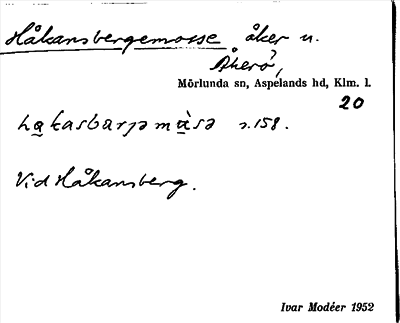 Håkansbergemosse åker u.
Åkerö?,
Mörlunda sn, Aspelands hd, Klm. l.
20
s. 158.
Vid Håkansberg.
Ivar Modéer 1952